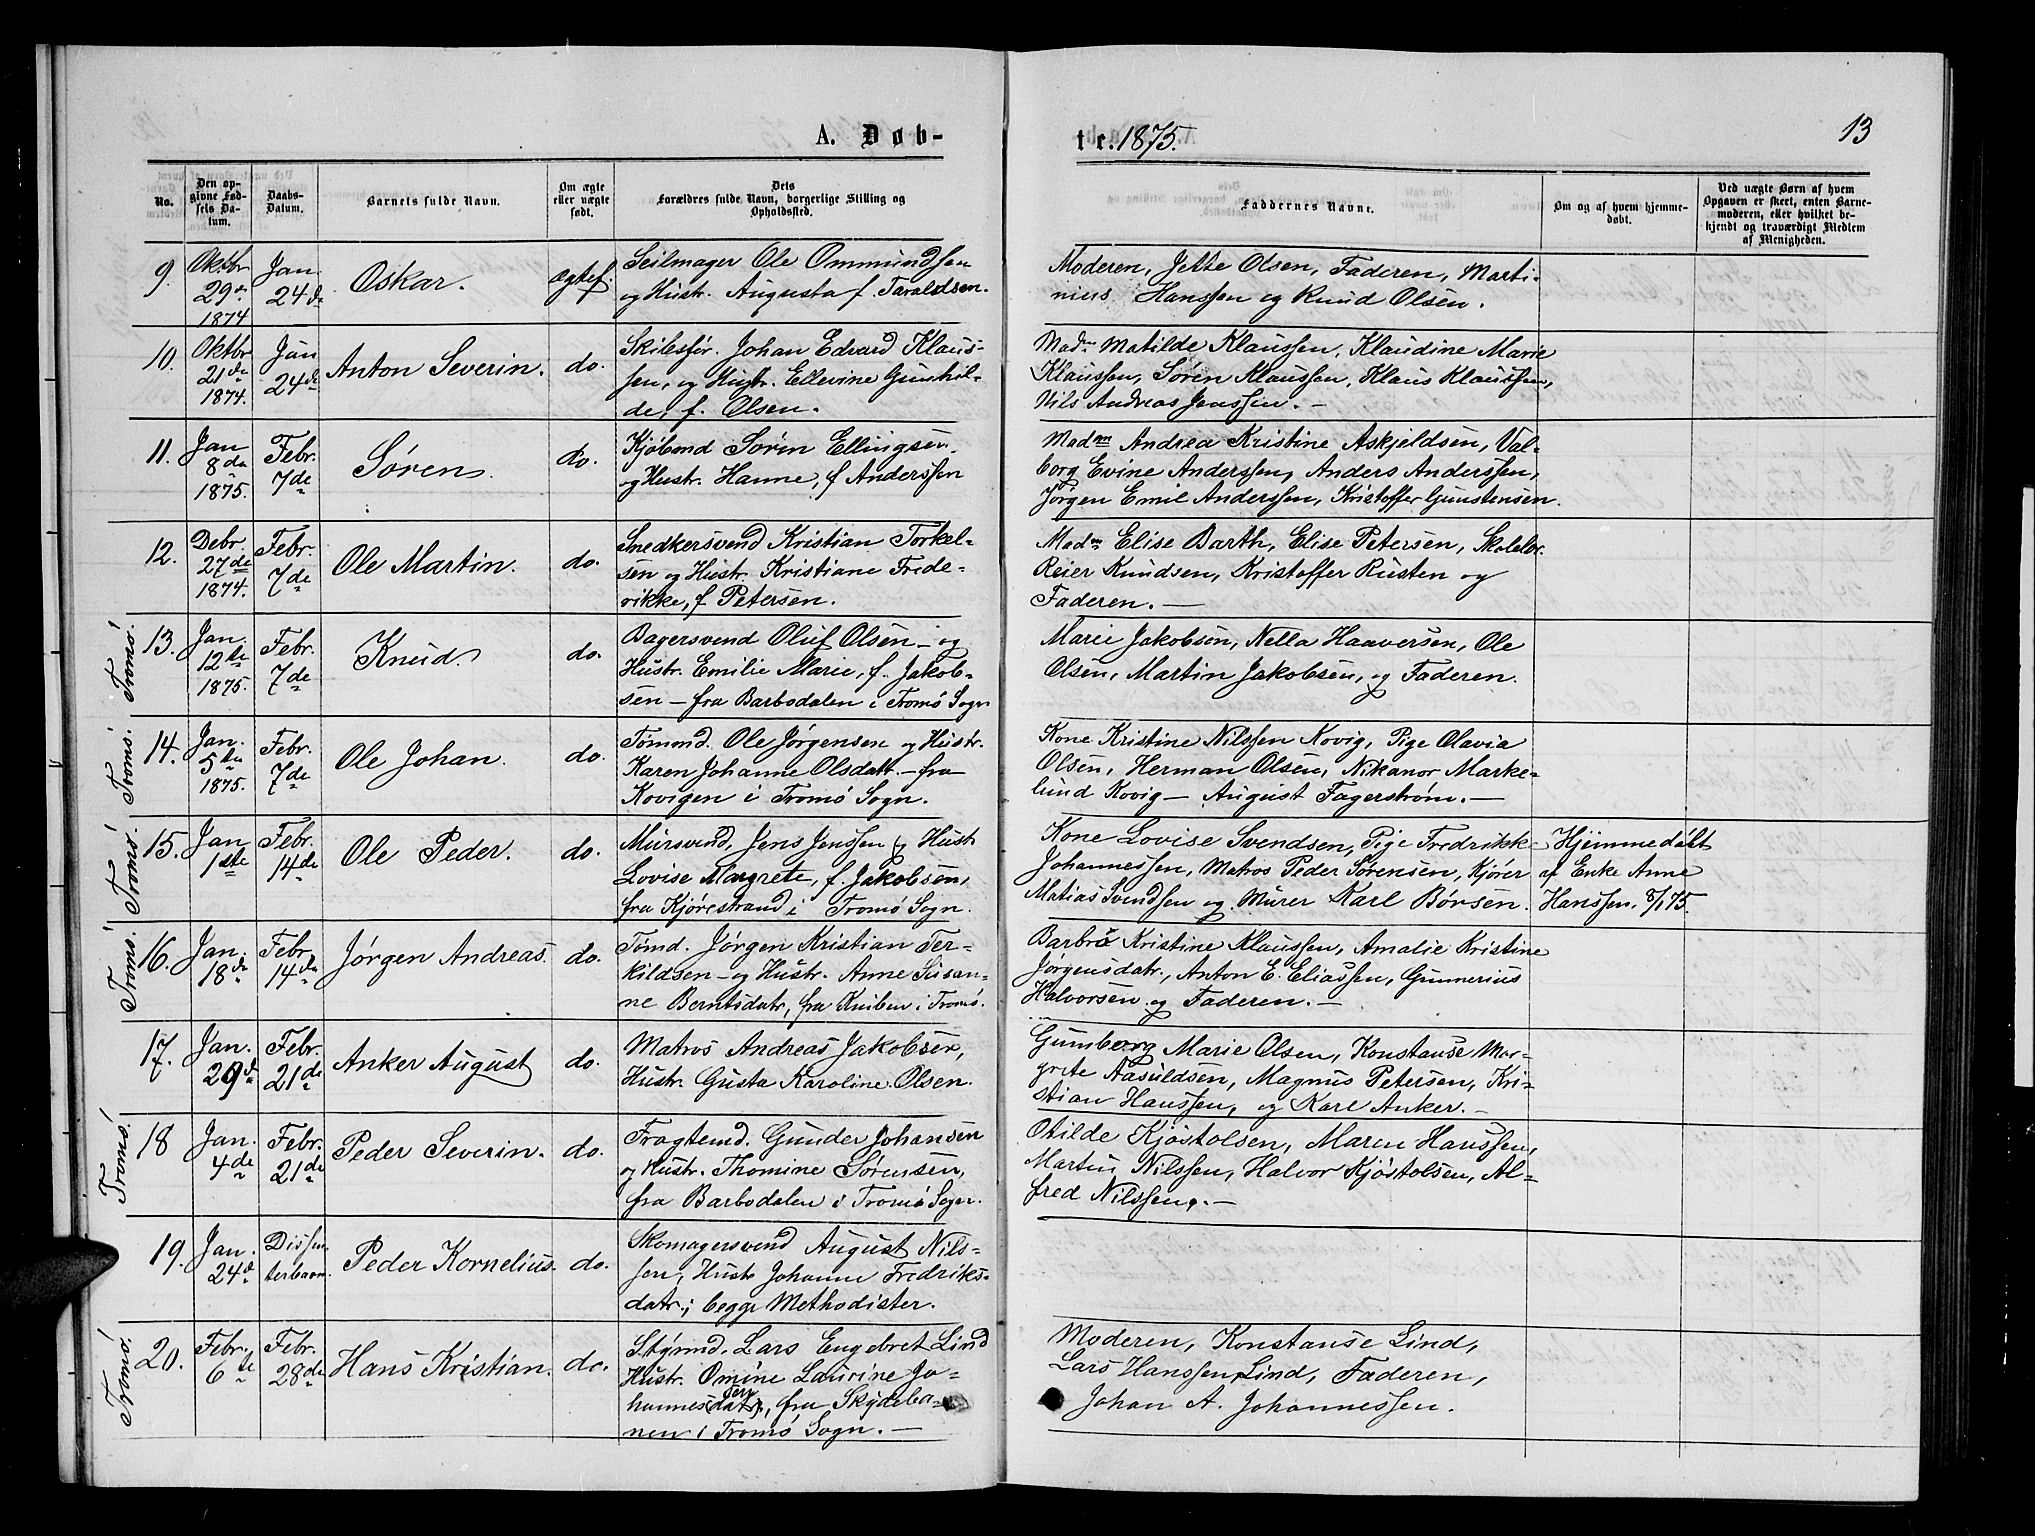 A. Døb-
te. 1875.
13
No.
Den op-
givne Fød-
sels Da-
tum.
Daabs-
Datum.
Barnets fulde Navn.
Om ægte
eller uægte
født.
Dets
Forældres fulde Navn, borgerlige Stilling og
Opholdssted.
Faddernes Navne.
Om og af hvem hjemme-
døbt.
Ved uægte Børn af hvem
Opgaven er skeet, enten Barne-
moderen, eller hvilket be-
kjendt og troværdigt Medlem
af Menigheden.
9. Oktbr 29de 1874
Jan. 24de
Oskar.
ægtef.
Seilmager Ole Ommundsen
og Hustr. Augusta f. Taraldsen.
Moderen, Jette Olsen, Faderen, Marti-
nius Hanssen og Knud Olsen.
10. Oktbr 21de 1874.
Jan 24de
Anton Severin.
do.
Skibsfør. Johan Edvard Klaus-
sen, og Hustr. Ellevine Gunhil-
de, f. Olsen.
Madm Matilde Klaussen, Klaudine Marie
Klaussen, Søren Klaussen, Klaus Klaussen,
Nils Andreas Janssen. —
11. Jan 8de 1875.
Febr. 7de
Søren
do.
Kjøbmd Søren Ellingsen.
og Hustr. Hanne, f Anderssen
Madm Andrea Kristine Askjeldsen, Val-
borg Evine Anderssen, Anders Anderssen,
Jørgen Emil Anderssen, Kristoffer Gunstensen.
12. Debr 27de 1874.
Febr. 7de
Ole Martin.
do.
Snedkersvend Kristian Torkel-
sen og Hustr. Kristiane Frede-
rikke, f Petersen.
Madm Elise Barth, Elise Petersen, Skolelr.
Reier Knudsen, Kristoffer Rusten og
Faderen. —
Tromø.
13. Jan. 12te 1875.
Febr. 7de
Knud.
do.
Bagersvend Oluf Olsen — og
Hustr. Emilie Marie, f. Jakob-
sen — fra Barbodalen i Tromø Sogn
Marie Jakobsen, Nella Haaversen, Ole
Olsen, Martin Jakobsen, og Faderen.
Tromø.
14. Jan. 5te 1875.
Febr. 7de
Ole Johan.
do.
Tømmd. Ole Jørgensen og Hustr.
Karen Johanne Olsdatr. — fra
Kovigen i Tromø Sogn.
Kone Kristine Nilssen Kovig, Pige Olavia
Olsen, Herman Olsen, Nikanor Marke-
lund Kovig — August Fagerstrøm. —
Tromø.
15. Jan 1ste
Febr. 14de
Ole Peder.
do.
Mursvend, Jens Janssen og Hustr
Lovise Margrete, f. Jakobsen,
fra Kjørestrand i Tromø Sogn.
Kone Lovise Svendsen, Pige Fredrikke
Johannessen, Matros Peder Sørensen, Kjører
Matias Svendsen og Murer Karl Børsen.
Hjemmedøbt
af Enke Anne
Hanssen, 8/1 75.
Tromø.
16. Jan. 18de
Febr. 14de
Jørgen Andreas.
do.
Tømd. Jørgen Kristian Ter-
kildsen — og Hustr. Anne Susan-
ne Berntsdatr, fra Kniben i Tromø.
Barbra Kristine Klaussen, Amalie Kristine
Jørgensdatr., Anton E. Eliassen, Gunnerius
Halvorsen og Faderen. —
17. Jan. 29de
Febr. 21de
Anker August
do.
Matros Andreas Jakobsen,
Hustr. Gusta Karoline Olsen.
Gumborg Marie Olsen, Konstanse Mar-
grete Aasuldsen, Magnus Petersen, Kri-
stian Hanssen, og Karl Anker. —
Tromø.
18 Jan. 4de
Febr. 21de
Peder Severin.
do.
Fragtemd. Gunder Johansen
og Hustr. Thomine Sørensen,
fra Barbodalen i Tromø Sogn.
Otilde Kjøstolsen, Maren Hanssen,
Martin Nilssen, Halvor Kjøstolsen, Al-
fred Nilssen. —
19. Jan. 24de
Dissen-
terbarn.
Peder Kornelius.
do.
Skomagersvend August Nils-
sen, Hustr Johanne Fredriks-
datr.; begge Methodister.
Tromø.
20. Febr. 6te
Febr. 28de
Hans Kristian.
do.
Styrmd. Lars Engebret Lind
Hustr. Omine Laurine Jo-
hannes(datr)sen, fra Skydeba-
nen i Tromø Sogn. —
Moderen, Konstanse Lind,
Lars Hanssen Lind, Faderen,
Johan A. Johannessen.